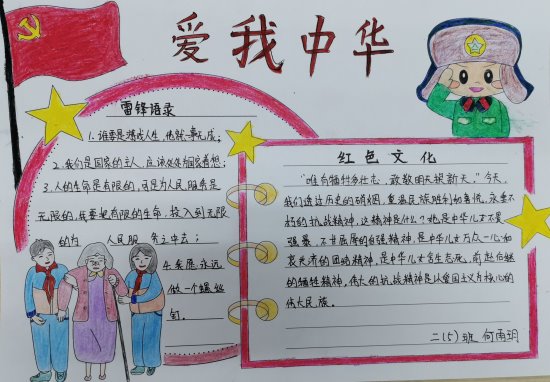 爱我中华
雷锋语录
1.谁要是游戏人生，他就一事无成；
2.我们是国家的主人，应该处处为国家着想；
3.人的生命是有限的，可是为人民服务是
无限的，我要把有限的生命，投入到无限
的为人民服务之中去；
4.我愿永远
做一个螺丝
钉。
红色文化
“唯有牺牲多壮志，敢教日月换新天。”今天，
我们透过历史的硝烟，重温民族胜利和喜悦，永垂不
朽的抗战精神，这精神是什么？她是中华儿女不畏
强暴、不甘屈辱的自强精神，是中华儿女万众一心和
衷共济的团助精神，是中华儿女舍生忘死、前赴后继
的牺牲精神，伟大的抗战精神是以爱国主义为核心的
伟大民族。
二（5）班 何雨玥